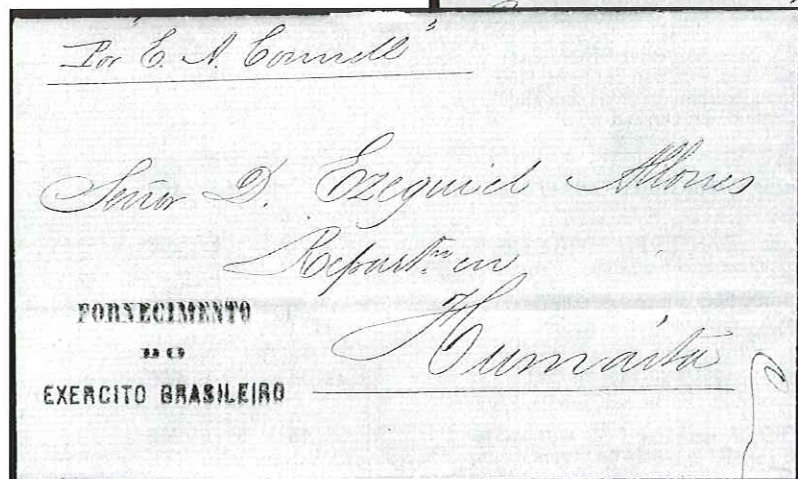 Por "E. A. Connell"
Señor D. Ezequiel
Repart.n en
Humáita
FORNECIMENTO
DO
EXERCITO BRASILEIRO